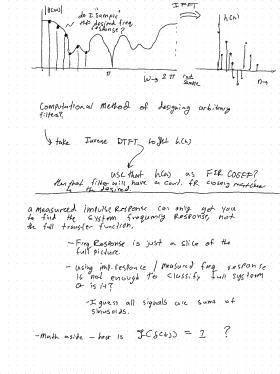 IFFT
|H(ω)|
do I "sample"
this desired freq.
response?
h(n)
π
ω→ 2π
not
same
n→
Computational Method of designing arbitrary
filters?
take Inverse DTFT to get h(n)
use that h(n) as FIR COEFF?
then that filter will have a cont. FR closely matches
to the desired.
a measured impulse Response can only get you
to find the system frequency Response, not
the full transfer function.
- Freq. Response is just a slice of the
full picture.
- using imp. response / measured freq response
is not enough to classify full system
or is it?
- I guess all signals are sums of
sinusoids.
- Math aside - how is F(δ(t)) = 1 ?